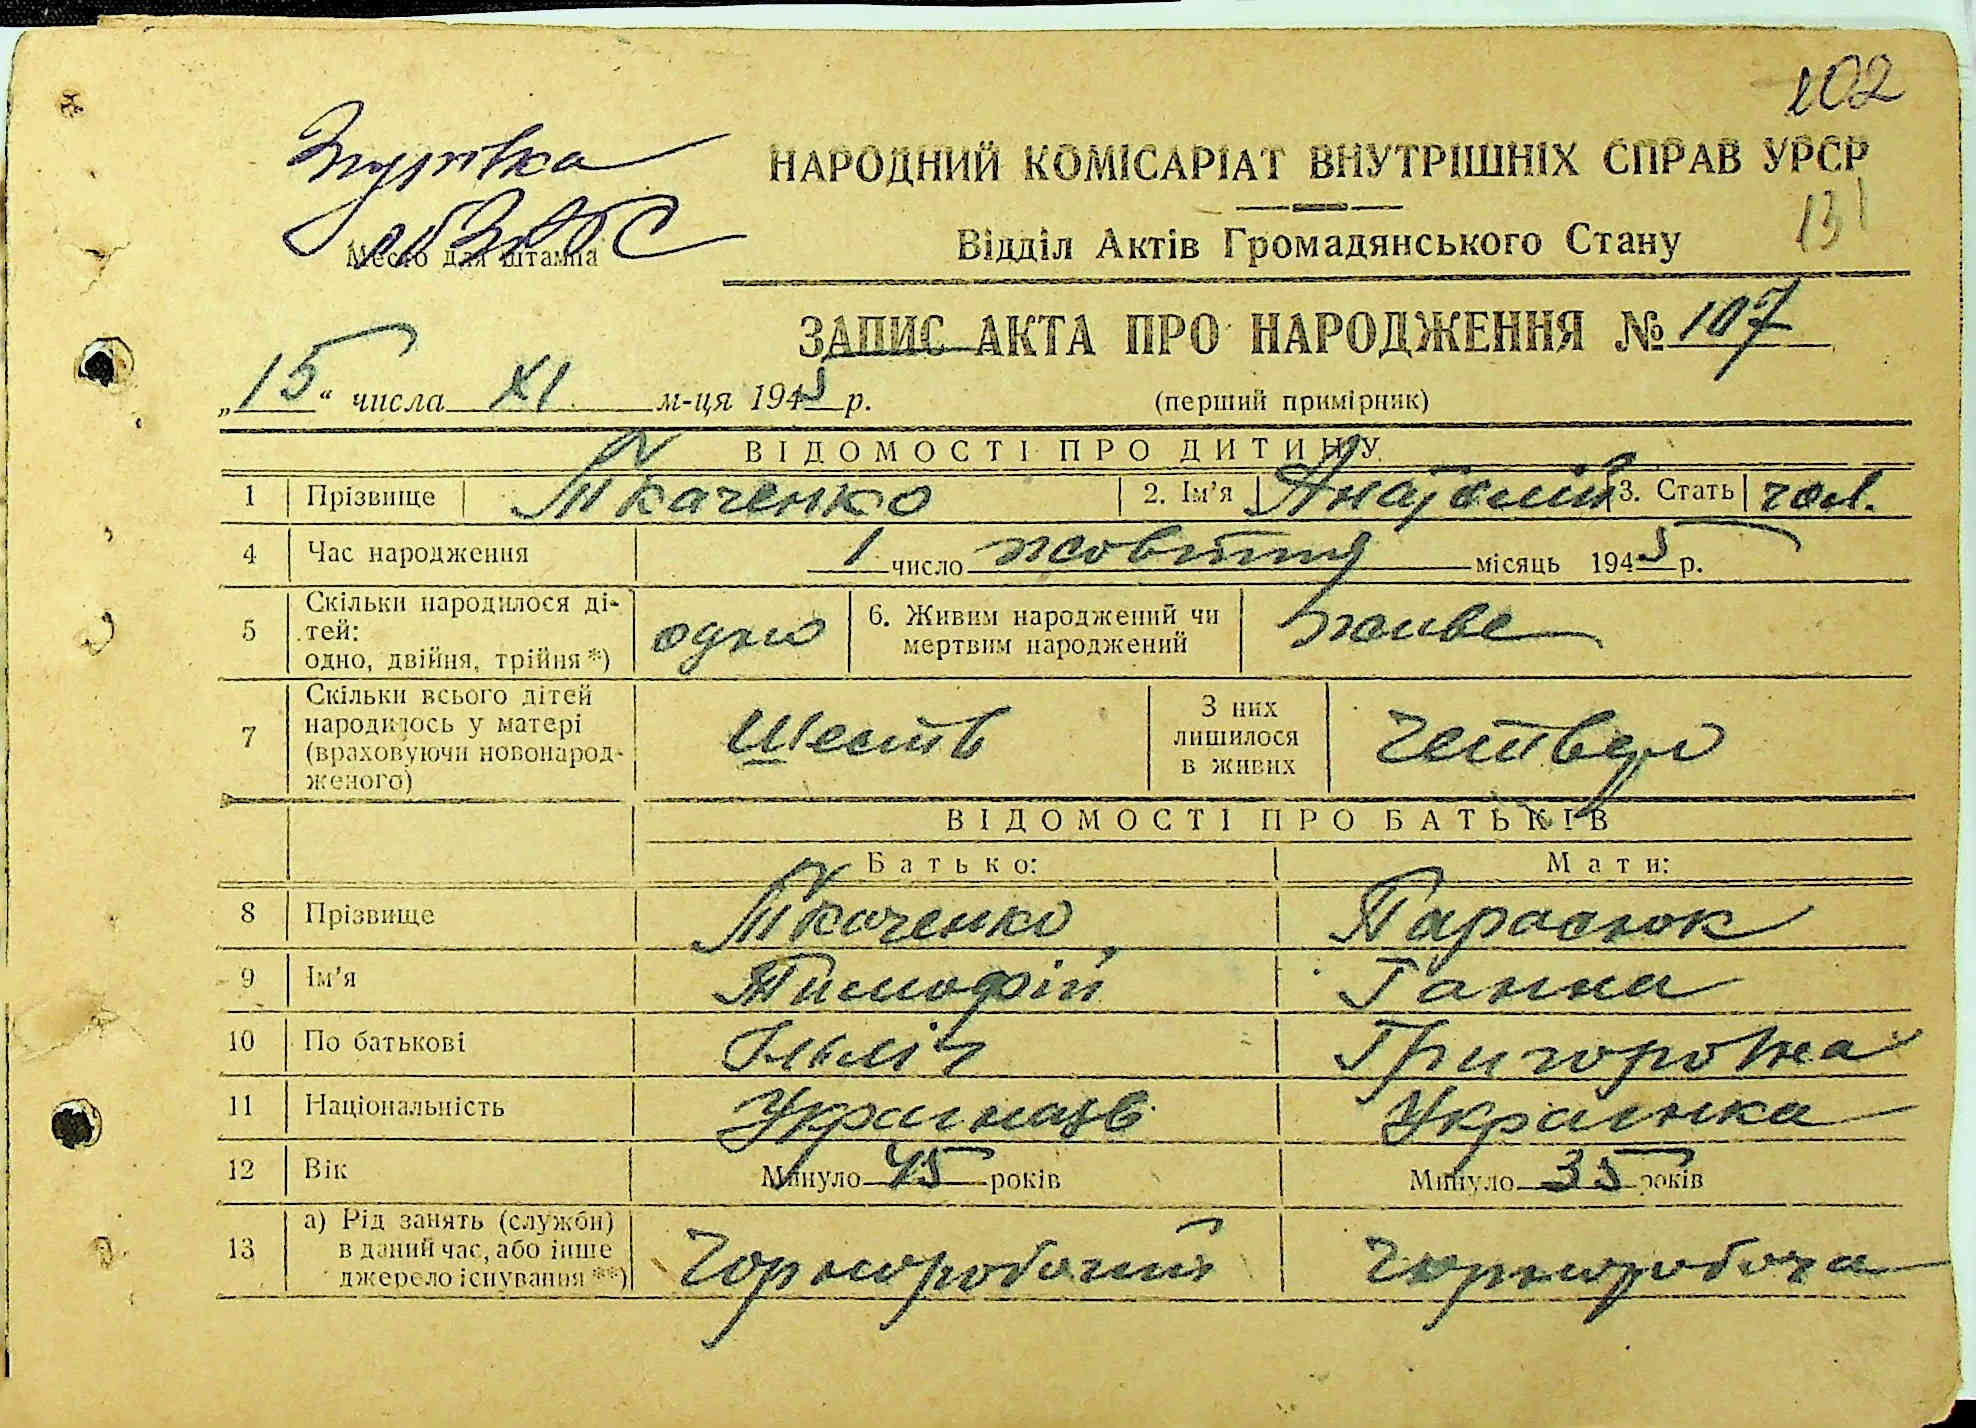 102
Згурівка
НАРОДНИЙ КОМІСАРІАТ ВНУТРІШНІХ СПРАВ УРСР
131
рбЗАГС
Место для штампа
Відділ Актів Громадянського Стану
ЗАПИС АКТА ПРО НАРОДЖЕННЯ № 107
„15“ числа XI м-ця 1945 р. (перший примірник)
ВІДОМОСТІ ПРО ДИТИНУ
1 Прізвище Ткаченко 2. Ім'я Анатолій 3. Стать чол.
4 Час народження 1 число жовтня місяць 1945 р.
5 Скільки народилося дітей: одно, двійня, трійня *) одно 6. Живим народжений чи мертвим народжений живе
7 Скільки всього дітей народилось у матері (враховуючи новонародженого) шесть З них лишилося в живих четверо
ВІДОМОСТІ ПРО БАТЬКІВ
Батько: Мати:
8 Прізвище Ткаченко Тарасюк
9 Ім'я Тимофій Ганна
10 По батькові Ільліч Григоровна
11 Національність Українець Українка
12 Вік Минуло 45 років Минуло 35 років
13 а) Рід занять (служби) в даний час, або інше джерело існування **) Чорноробочий Чорноробоча